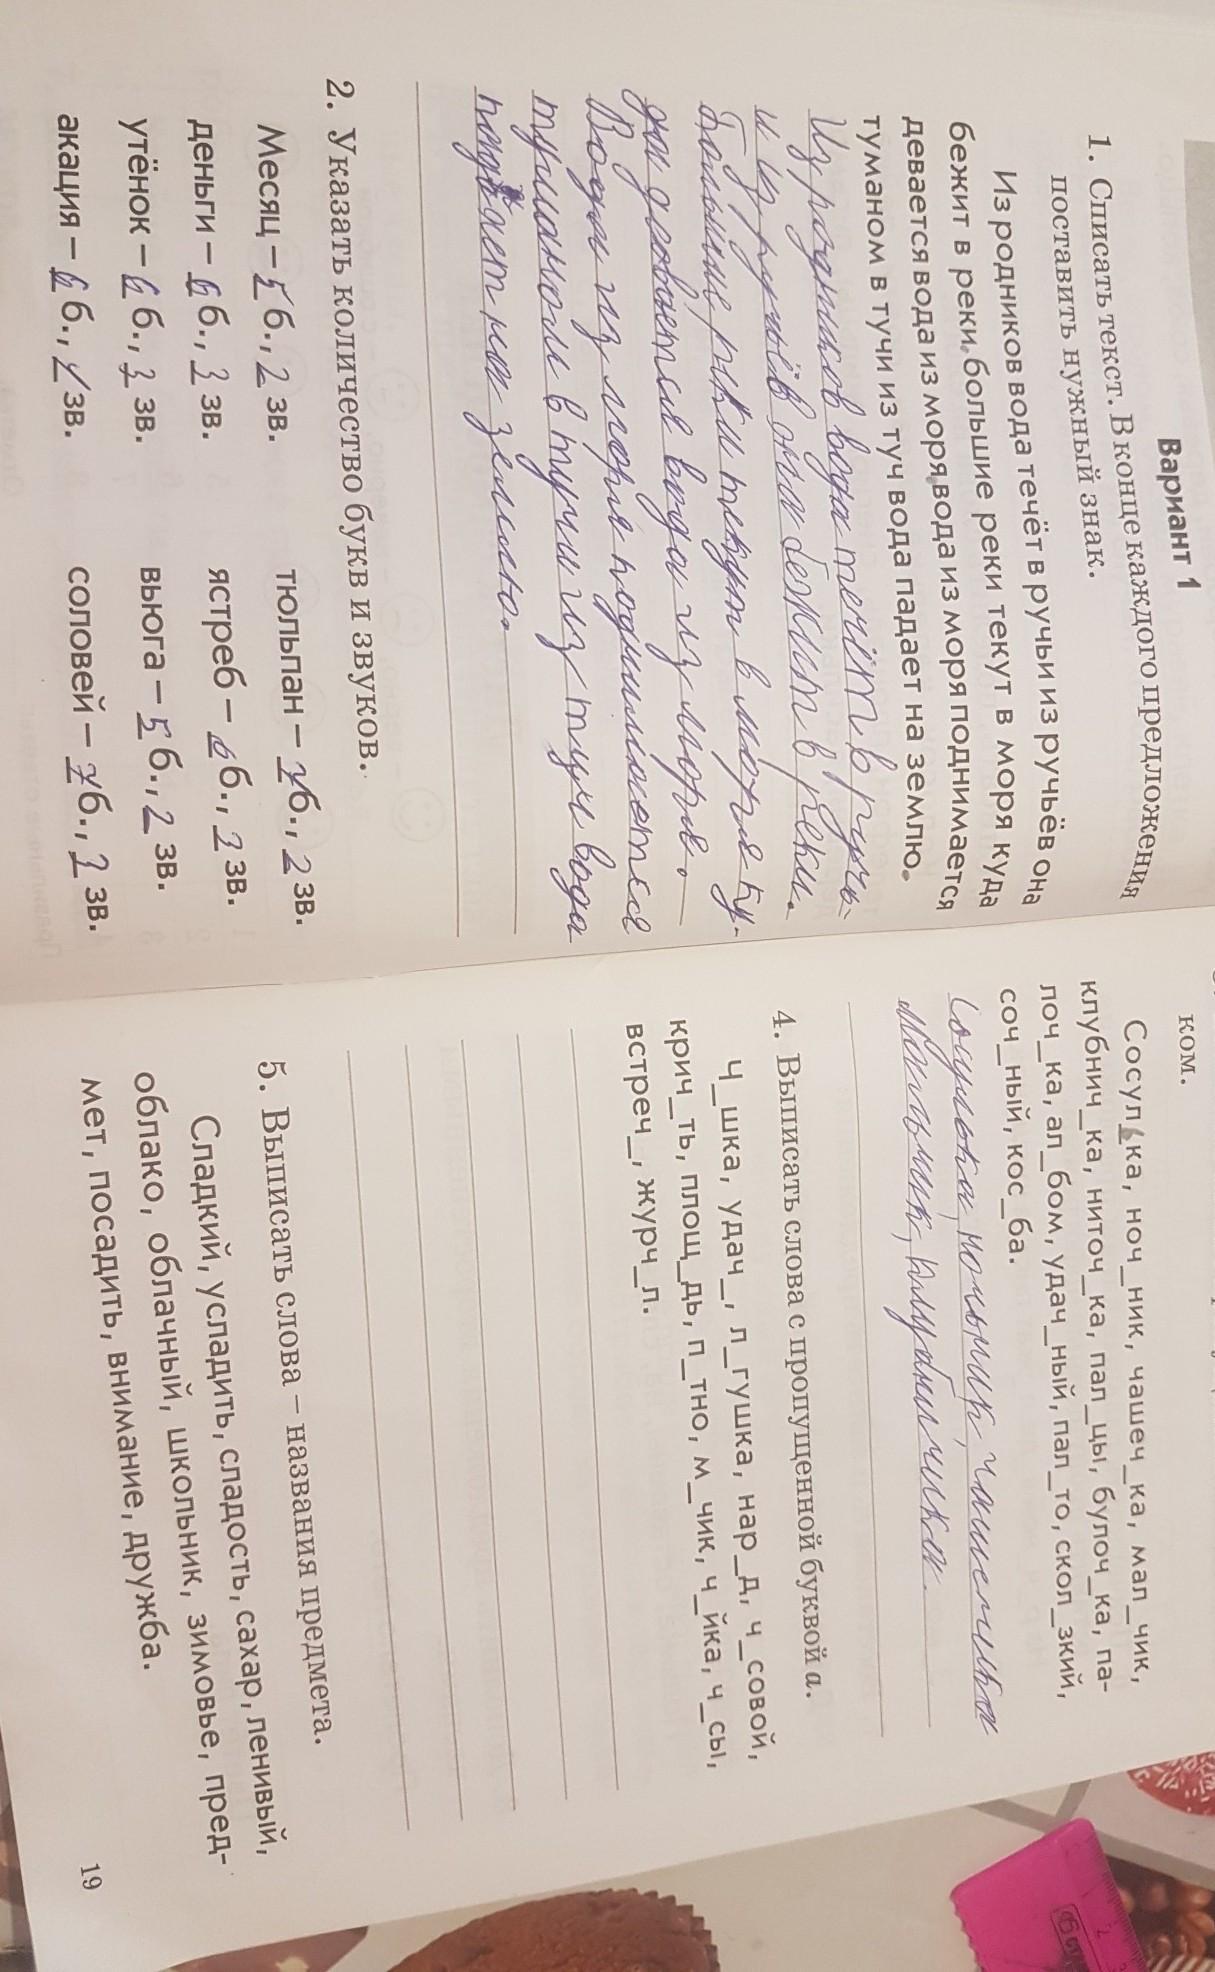 Вариант 1
1. Списать текст. В конце каждого предложения
поставить нужный знак.
Из родников вода течёт в ручьи из ручьёв она
бежит в реки. большие реки текут в моря куда
девается вода из моря. вода из моря поднимается
туманом в тучи из туч вода падает на землю.
Из родников вода течёт в ручь-
и из ручьёв она бежит в реки.
Большие реки текут в моря ку-
да девается вода из моря.
Вода из моря поднимается
туманом в тучи из туч вода
падает на землю.
2. Указать количество букв и звуков.
Месяц – 5 б., 2 зв.
тюльпан – 7 б., 2 зв.
деньги – 6 б., 3 зв.
ястреб – 6 б., 3 зв.
утёнок – 6 б., 3 зв.
вьюга – 5 б., 2 зв.
акация – 6 б., 4 зв.
соловей – 7 б., 3 зв.
ком.
Сосулька, ноч_ник, чашеч_ка, мал_чик,
клубнич_ка, ниточ_ка, пал_цы, булоч_ка, па-
лоч_ка, ал_бом, удач_ный, пал_то, скол_зкий,
соч_ный, кос_ба.
Сосулька, ночьник, чашечька
Мальчик, клубничка
4. Выписать слова с пропущенной буквой а.
Ч_шка, удач_, л_гушка, нар_д, ч_совой,
крич_ть, площ_дь, п_тно, м_чик, ч_йка, ч_сы,
встреч_, журч_л.
5. Выписать слова – названия предмета.
Сладкий, усладить, сладость, сахар, ленивый,
облако, облачный, школьник, зимовье, пред-
мет, посадить, внимание, дружба.
19